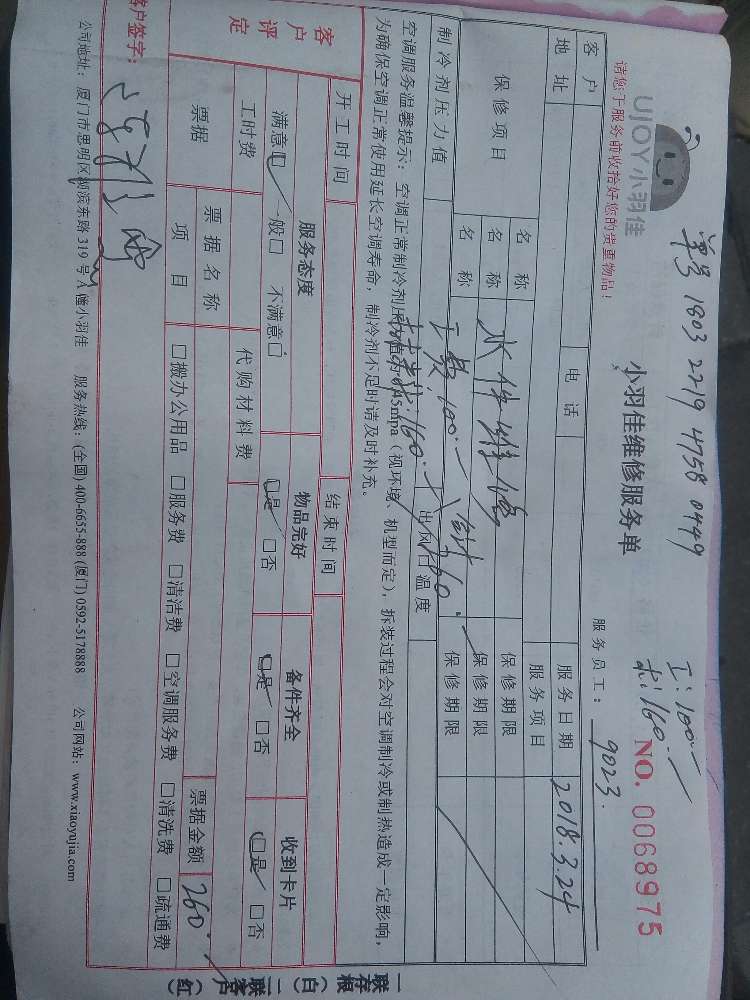 单号 1803 2219 4758 0449
工:100.
材:160.
UJOY小羽佳
小羽佳维修服务单
NO. 0068975
请您于服务前收拾好您的贵重物品!
服务员工: 9023.
客户
电话
服务日期 2018.3.24
地址
服务项目
保修项目
名称 水件维修
保修期限
名称
保修期限
名称 工费:100.
保修期限
材料:160. 合计 260.
制冷剂压力值
出风口温度
空调服务温馨提示:空调正常制冷剂压力值约0.45mpa(视环境、机型而定),拆装过程会对空调制冷或制热造成一定影响,
为确保空调正常使用延长空调寿命,制冷剂不足时请及时补充。
开工时间
结束时间
客户评定
服务态度
物品完好
备件齐全
收到卡片
满意□ 一般□ 不满意□
□是 □否
□是 □否
□是 □否
工时费
代购材料费
票据
票据名称
票据金额 260.
项目
□搬办公用品 □服务费 □清洁费 □空调服务费 □清洗费 □疏通费
客户签字:
公司地址:厦门市思明区湖滨东路319号A幢小羽佳 服务热线:(全国)400-6655-888(厦门)0592-5178888 公司网站:www.xiaoyujia.com
一联存根(白) 二联客户(红)